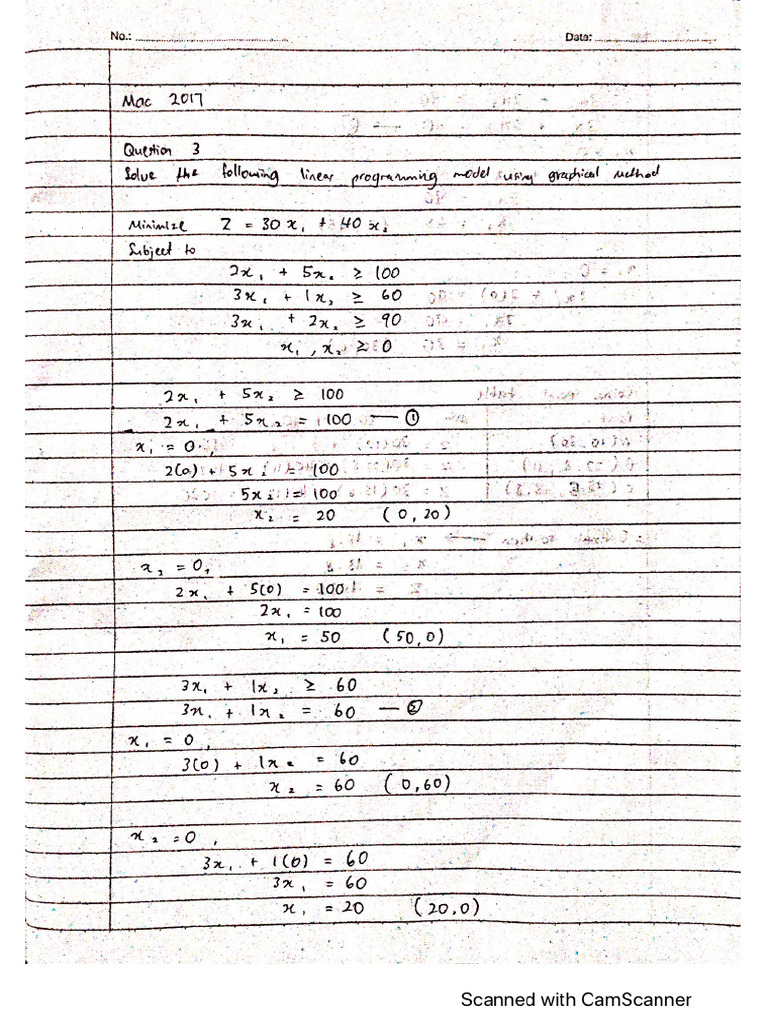 No.: Date:
Mac 2017
Question 3
Solve the following linear programming model using graphical method
Minimize Z = 30x₁ + 40x₂
Subject to
2x₁ + 5x₂ ≥ 100
3x₁ + 1x₂ ≥ 60
3x₁ + 2x₂ ≥ 90
x₁, x₂ ≥ 0
2x₁ + 5x₂ ≥ 100
2x₁ + 5x₂ = 100 — ①
x₁ = 0,
2(0) + 5x₂ = 100
5x₂ = 100
x₂ = 20 (0,20)
x₂ = 0,
2x₁ + 5(0) = 100
2x₁ = 100
x₁ = 50 (50,0)
3x₁ + 1x₂ ≥ 60
3x₁ + 1x₂ = 60 — ②
x₁ = 0,
3(0) + 1x₂ = 60
x₂ = 60 (0,60)
x₂ = 0,
3x₁ + 1(0) = 60
3x₁ = 60
x₁ = 20 (20,0)
Scanned with CamScanner